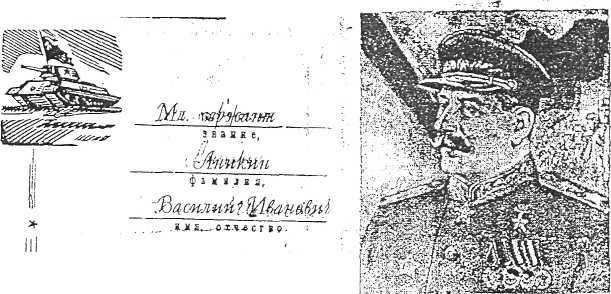 Мл. сержант
звание,
Аникин
фамилия,
Василий Иванович
имя, отчество.